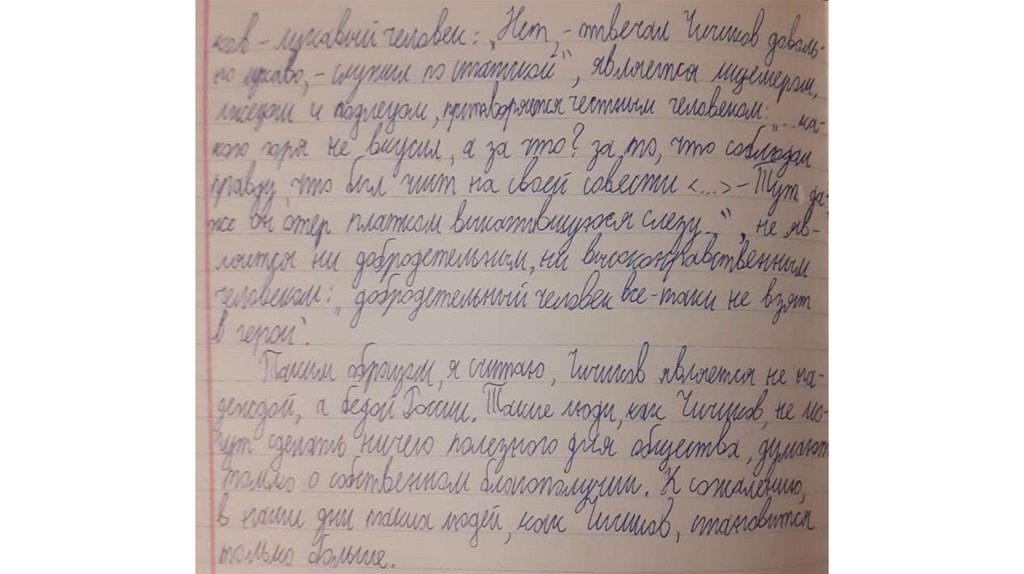 ков – лукавый человек: „Нет, – отвечал Чичиков доволь-
но лукаво, – служил по статской“, является лицемером,
лжецом и подлецом, притворяется честным человеком: „...ка-
кого горя не вкусил, а за что? за то, что соблюдал
правду, что был чист на своей совести <...> – Тут да-
же он отер платком выкатившуюся слезу...“, не яв-
ляется ни добродетельным, ни высоконравственным
человеком: „добродетельный человек все-таки не взят
в герои“.
Таким образом, я считаю, Чичиков является не на-
деждой, а бедой России. Такие люди, как Чичиков, не мо-
гут сделать ничего полезного для общества, думают
только о собственном благополучии. К сожалению,
в наши дни таких людей, как Чичиков, становится
только больше.